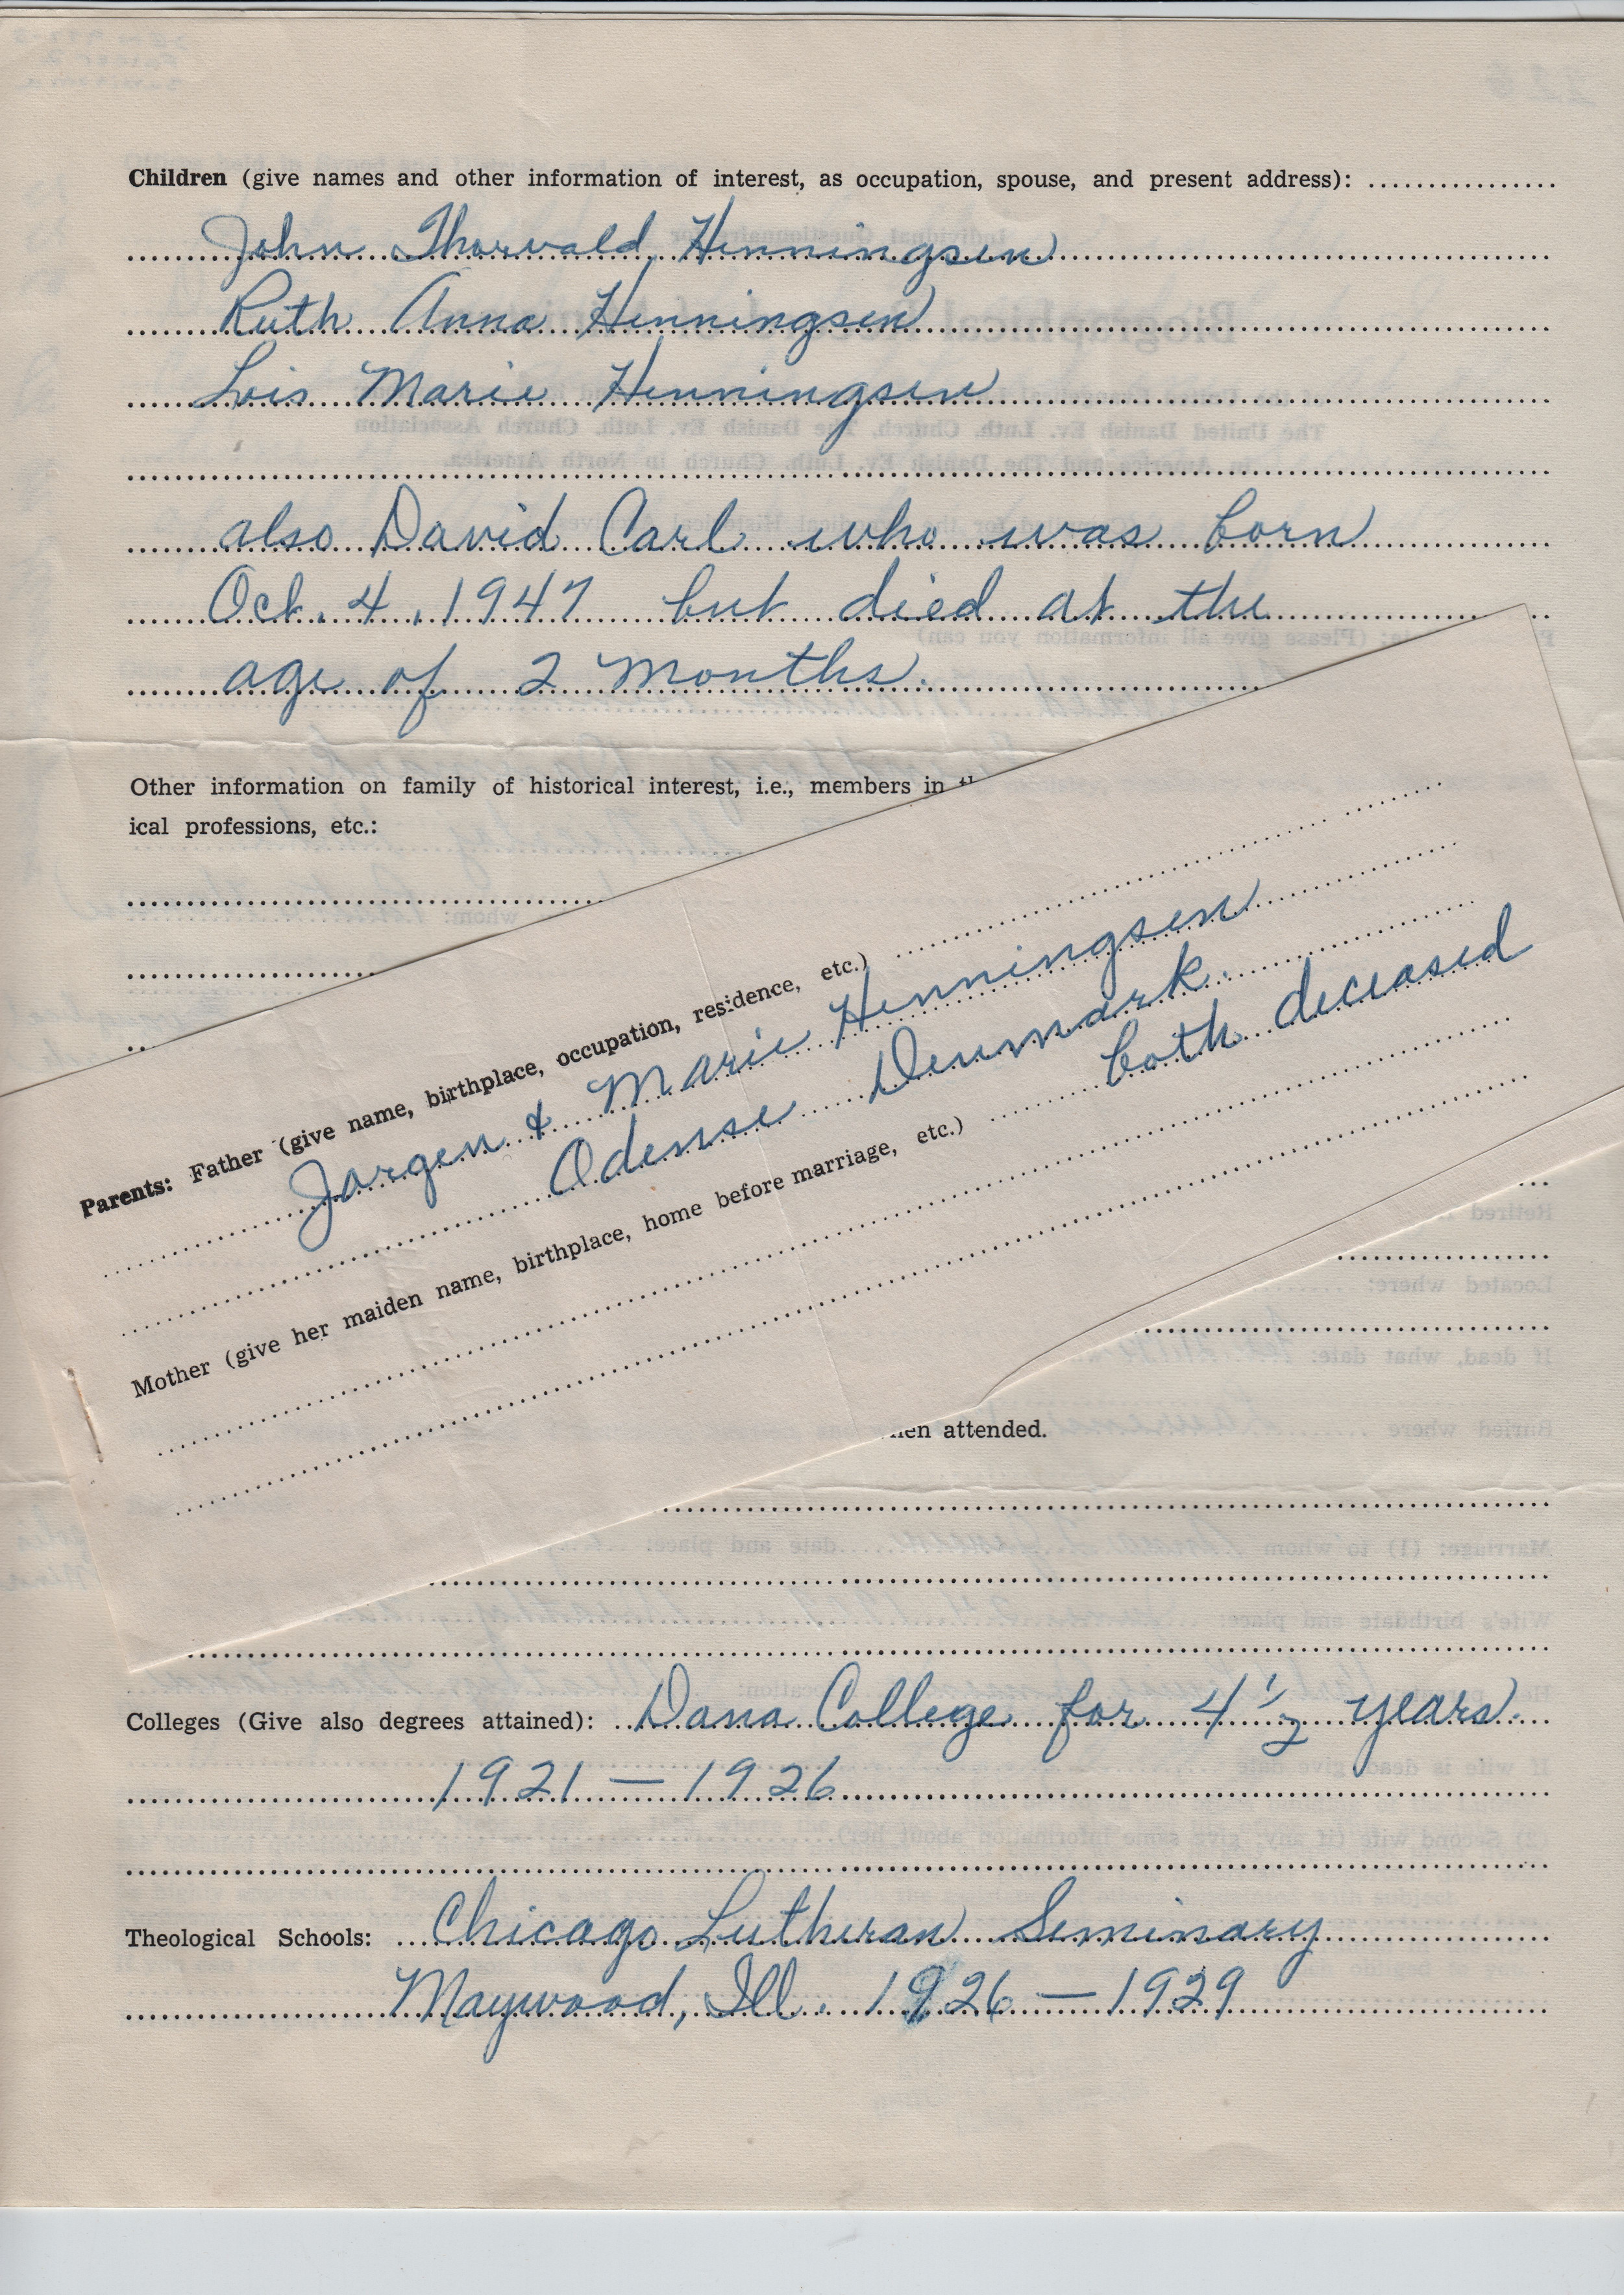 Children (give names and other information of interest, as occupation, spouse, and present address):
John Thorvald Henningsen
Ruth Anna Henningsen
Lois Marie Henningsen
also David Carl who was born
Oct. 4, 1947 but died at the
age of 2 months.
Other information on family of historical interest, i.e., members in
ical professions, etc.:
Parents: Father (give name, birthplace, occupation, residence, etc.)
Jorgen & Marie Henningsen
Odense Denmark.
both deceased
Mother (give her maiden name, birthplace, home before marriage, etc.)
attended.
Colleges (Give also degrees attained): Dana College for 4 1/2 years.
1921 — 1926
Theological Schools: Chicago Lutheran Seminary
Maywood, Ill. 1926 — 1929